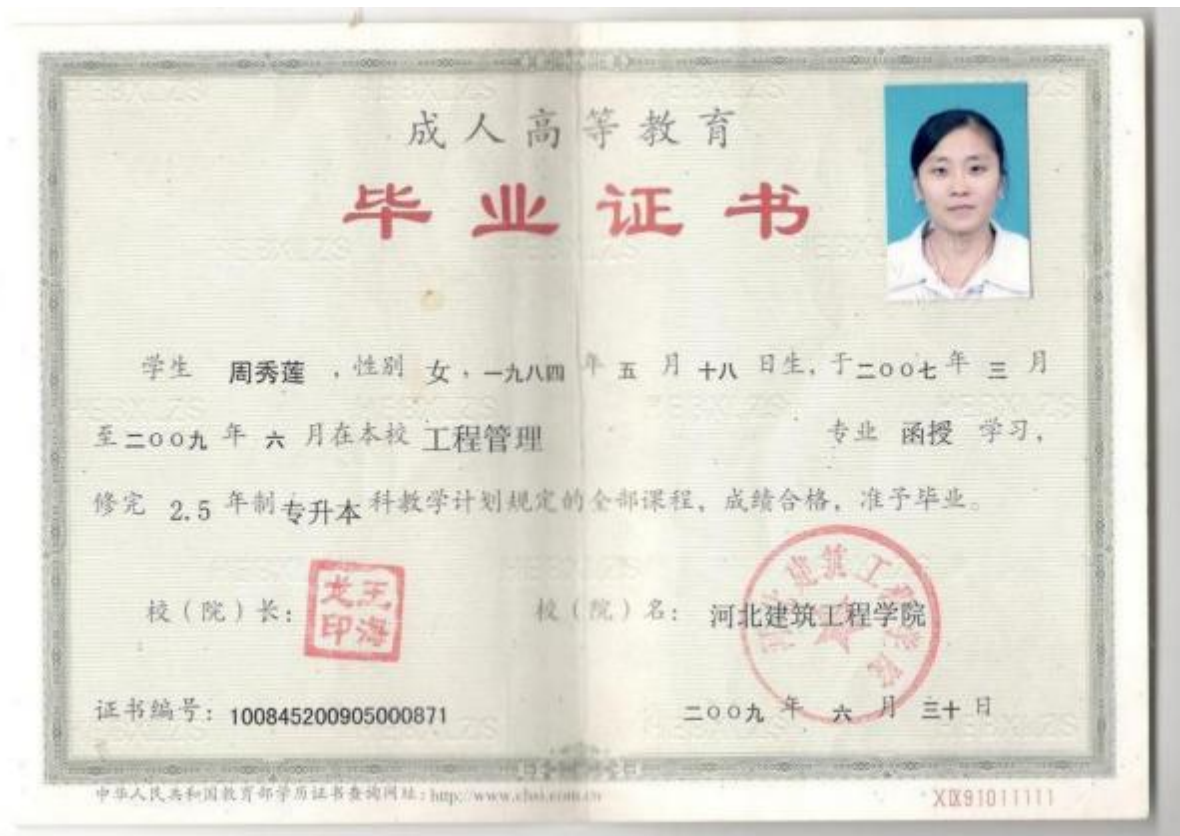 成人高等教育
毕业证书
学生 周秀莲 ，性别 女，一九八四 年 五 月 十八 日生，于二００七年 三 月
至二００九 年 六 月在本校 工程管理 专业 函授 学习，
修完 2.5 年制 专升本 科教学计划规定的全部课程，成绩合格，准予毕业。
校（院）长： 王海龙印
校（院）名： 河北建筑工程学院
河北建筑工程学院
证书编号：100845200905000871
二００九 年 六 月 三十 日
中华人民共和国教育部学历证书查询网址：http://www.chsi.com.cn
XIX91011111
HEBXLZS